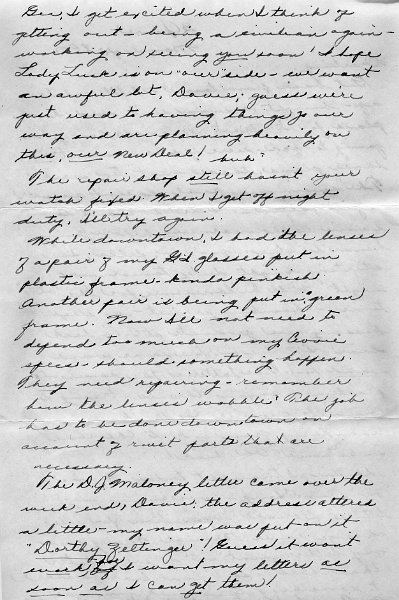 Gee, I get excited when I think of
getting out - being a civilian again -
working on seeing you soon! I hope
Lady Luck is on "our" side - we want
an awful lot, Davie; guess we're
just used to having things go our
way and are planning heavily on
this, our New Deal! huh?
The repair shop still hasn't your
watch fixed. When I get off night
duty, I'll try again.
While downtown, I had the lenses
of a pair of my G.I. glasses put in
plastic frame - kinda pinkish.
Another pair is being put in green
frame. Now I'll not need to
depend too much on my
specs - should something happen.
They need repairing - remember
how the lenses wobble? The job
has to be done downtown on
account of rivet parts that are
necessary.
The D.J. Maloney letter came over the
week end, Davie, the address altered
a little - my name was put on it
"Dorthy Zeltinger"! Guess it won't
work, I want my letters as
soon as I can get them!